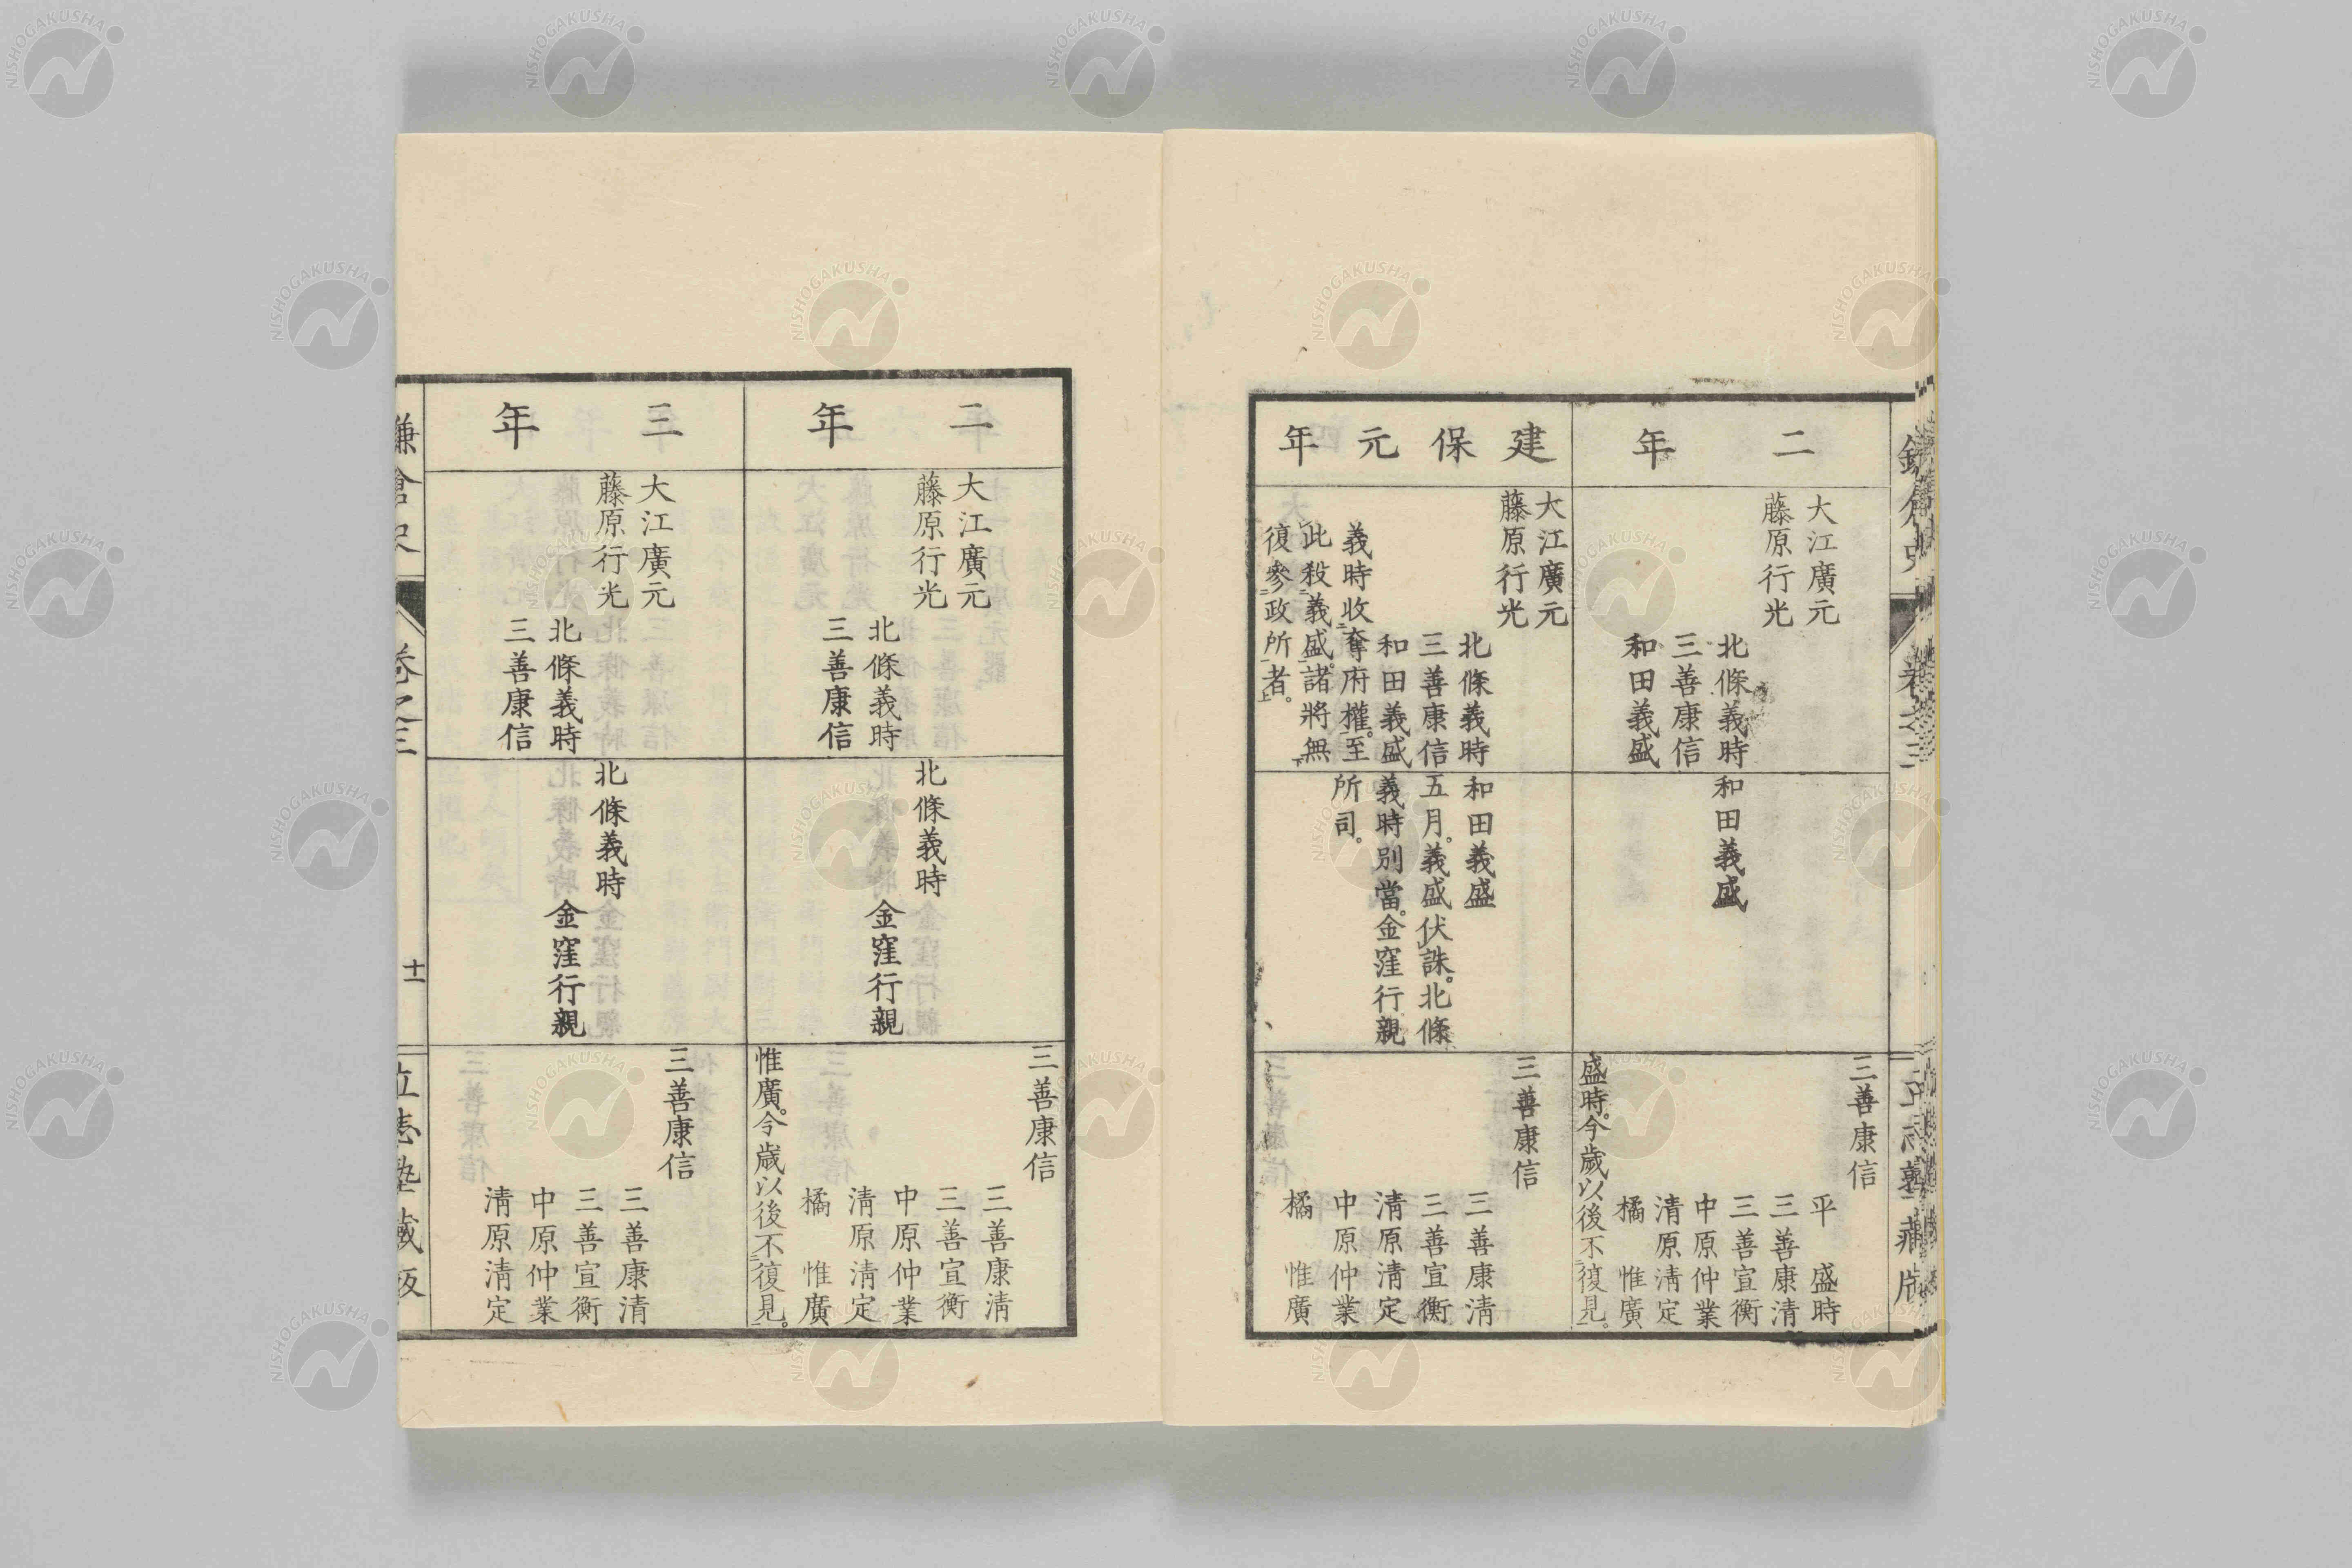 二年
大江廣元
藤原行光
北條義時
三善康信
和田義盛
和田義盛
三善康信
平 盛時
三善康清
三善宣衡
中原仲業
清原清定
橘 惟廣
盛時。今歲以後不復見。
建保元年
大江廣元
藤原行光
北條義時
三善康信
和田義盛
義時收奪府權。至
此殺義盛。諸將無
復參政所者。
和田義盛
五月。義盛伏誅。北條
義時別當。金窪行親
所司。
三善康信
三善康清
三善宣衡
清原清定
中原仲業
橘 惟廣
二年
大江廣元
藤原行光
北條義時
三善康信
北條義時
金窪行親
三善康信
三善康清
三善宣衡
中原仲業
清原清定
橘 惟廣
惟廣。今歲以後不復見。
三年
大江廣元
藤原行光
北條義時
三善康信
北條義時
金窪行親
三善康信
三善康清
三善宣衡
中原仲業
清原清定
鎌倉史
卷之三
十一
立志塾藏版
NISHOGAKUSHA